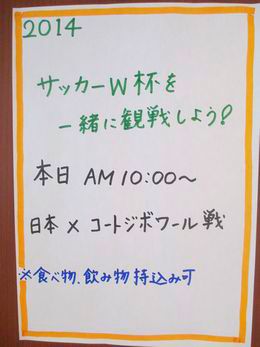 2014
サッカーW杯を
一緒に観戦しよう!
本日 AM10:00～
日本×コートジボワール戦
※食べ物、飲み物持込み可